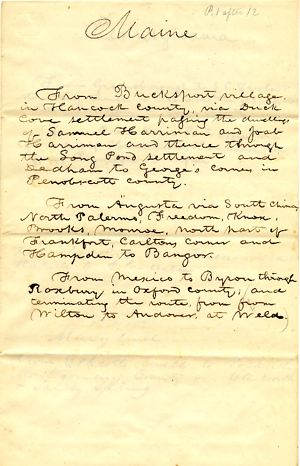 P. 1 after 12
Maine
From Bucksport village,
in Hancock county, via Duck
Cove settlement passing the dwellings
of Samuel Harriman and Joab
Harriman and thence through
the Long Pond settlement and
Dedham to George's corner in
Penobscott county.
From Augusta via South China,
North Palermo, Freedom, Knox,
Brooks, Monroe, north part of
Frankfort, Carltons corner and
Hampden to Bangor.
From Mexico to Byron through
Roxbury in Oxford county; (and
terminating the route, from
Wilton to Andover at Weld)